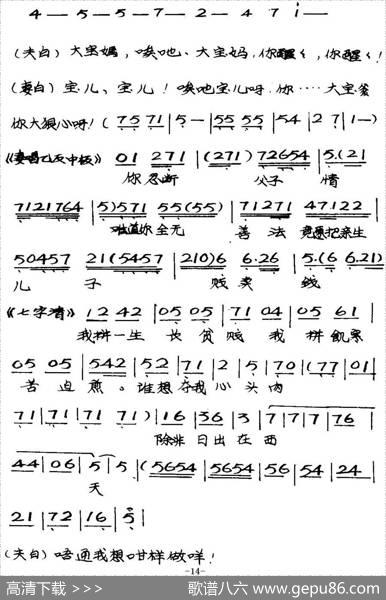 4 — 5 — 5 — 7 — 2 — 4 7 i —
(夫白) 大宝妈，唉吔、大宝妈，你醒々，你醒々！
(妻白) 宝儿、宝儿！唉吔宝儿呀，你····大宝爸
你太狠心呀！(75 71 | 5 — | 55 55 | 54 | 27 | 1 —)
《妻唱乙反中板》 01 271 | (271) 72654 | 5.(21
你忍断 父子 情
7121764 | 5)571 55(55) | 71271 47122 |
难道你全无 善 法 竟愿把亲生
50457 21(5457 | 210)6 6.26 | 5.(6 6.21)
儿 子 贱 卖 钱
《七字清》 12 42 | 05 05 | 71 04 | 05 61 |
我拼一生 长 贫 贱 我 拼 饥寒
05 05 | 542 | 52 | 71 | 2 | 5 | 70 | (77 | 01 |
苦 迫 煎。谁想夺我心头肉
71 | 71 | 71 71) | 16 | 36 | 3 | 7 | 7 | 7 | 76 |
除非 日出在西
44 | 06 | 5 | 5 | (5654 | 5654 | 56 | 54 | 24 |
天
21 | 72 | 16 | 5 |
(夫白) 唔通我想咁样做咩！
-14-
高清下载 >>>
歌谱八六 www.gepu86.com